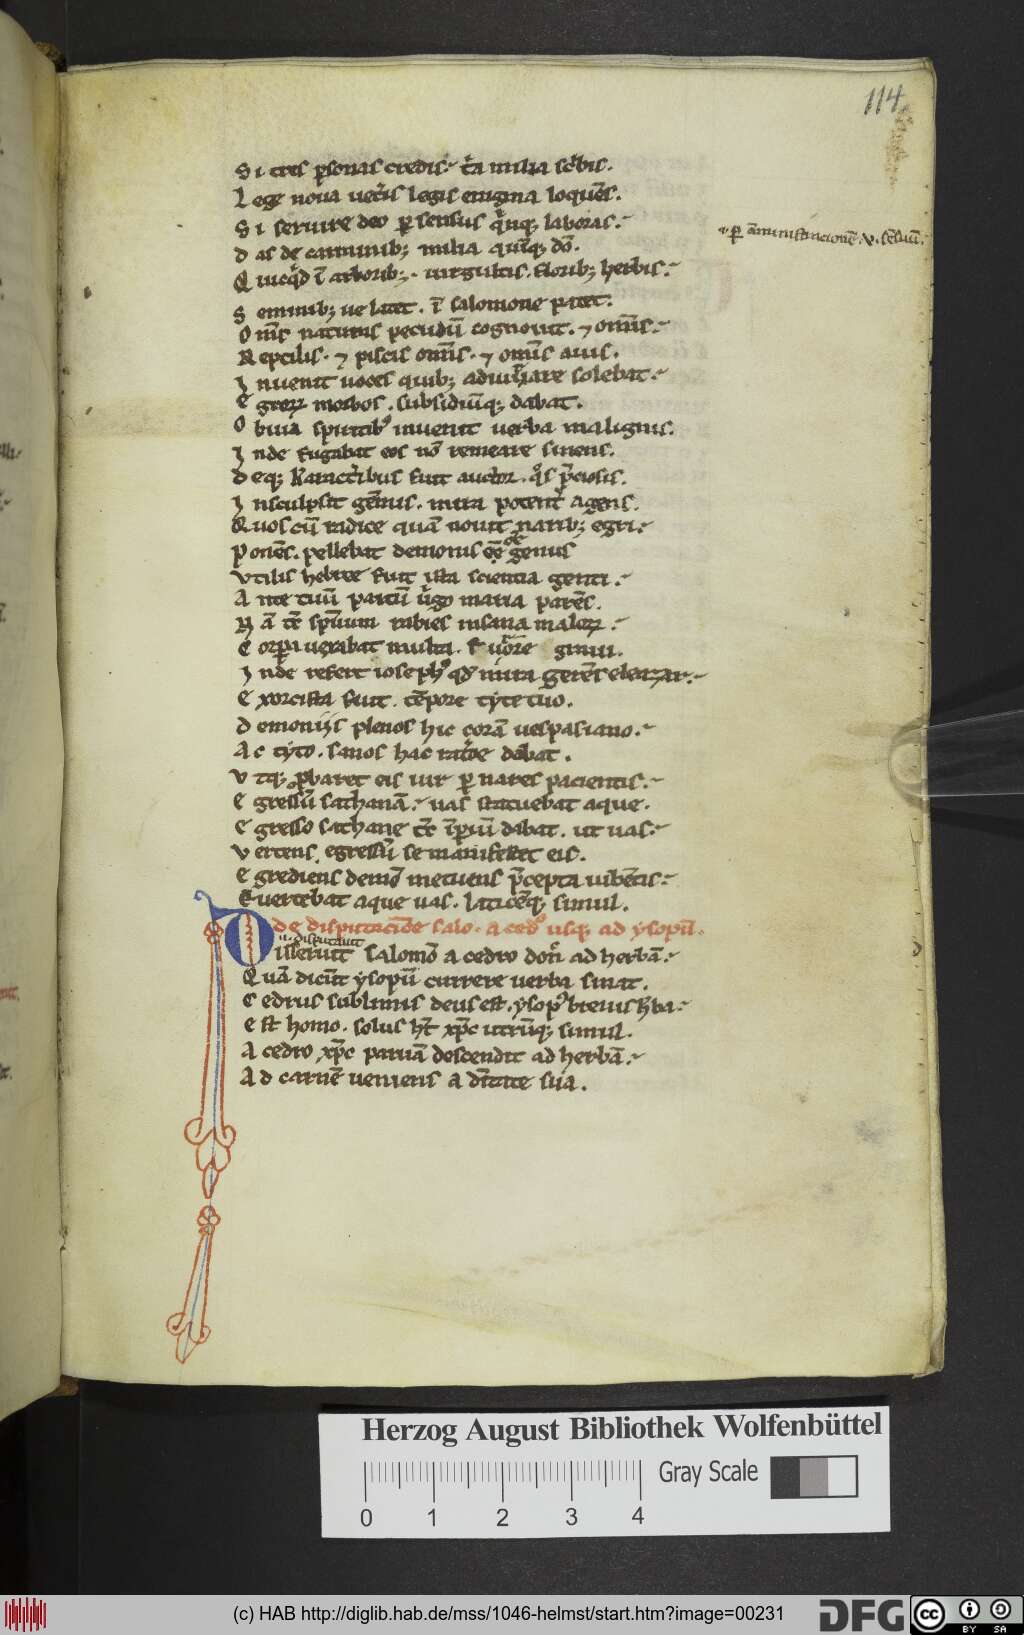 114
Si tres ꝑsonas credis. t͛a milia sc͛bis.
Lege noua uet͛is legis enigma loquēs.
Si seruire deo ꝑ sensus qͥnqꝫ laboras.
Das de carminibꝫ milia quīqꝫ dō.
Quicqͥd ī arboribꝫ. uirgultis. floribꝫ herbis.
Seminibꝫ ue latet. ī salomone patet.
Om̄s naturas pecudū cognouit. ⁊ om̄is.
Reptilis. ⁊ piscis om̄is. ⁊ om̄is auis.
Inuenit uoces quibꝫ adiurare solebat.
Egroꝝ morbos. subsidiūqꝫ dabat.
Obuia spiritibꝰ inuenit uerba malignis.
Inde fugabat eos nō remeare sinens.
Deqꝫ karact͛ibus fuit auctor. qͦs p̄ciosis.
Insculpsit gēmis. mira potent͛ agens.
Quos cū radice quā nouit naribꝫ egri.
Ponēs. pellebat demonis oē genus
Vtilis hebree fuit ista scientia genti.
Ante tuū partū uͥgo maria parēs.
Nā tc̄ sp̄ūum rabies insana maloꝝ.
Corꝑa uexabat multa. fuͦre graui.
Inde refert iosephꝰ qd̄ mira gerēs eleazar.
Exorcista fuit. tēpore tyte tuo.
Demoniis plenos hic corā uespasiano.
Ac tyto. sanos hac rat͛oe dabat.
Vtqꝫ ꝓbaret eis uir ꝑ nares pacientis.
Egressū sathanā. uas statuebat aque.
Egresso sathane tc̄ īꝑiū dabat. ut uas.
Vertens egressū se manifestet eis.
Egrediens demō metuens p̄cepta iubētis.
Euertebat aque uas. laticēqꝫ simul.
De disputacīoe salo. a cedͦ usqꝫ ad ysopū.
.i. disputauit
Disseruit salomō a cedro don͛ ad herbā.
Quā dicūt ysopū currere uerba sinat.
Cedrus sublimis deus est. ysopꝰ breuis h̄ba.
Est homo. solus ht̄ xp̄c utrūqꝫ simul.
A cedro xp̄c paruā descendit ad herbā.
Ad carnē ueniens a dītate sua.
Herzog August Bibliothek Wolfenbüttel
Gray Scale
0 1 2 3 4
(c) HAB http://diglib.hab.de/mss/1046-helmst/start.htm?image=00231
DFG
cc BY SA